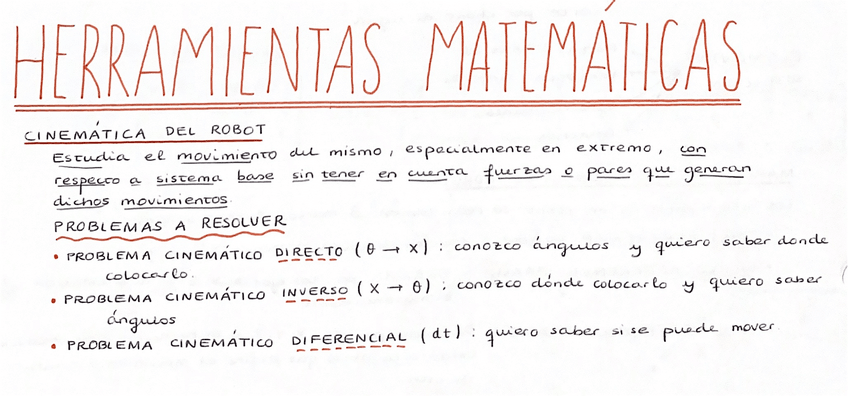 HERRAMIENTAS MATEMÁTICAS
CINEMÁTICA DEL ROBOT
Estudia el movimiento del mismo, especialmente en extremo, con
respecto a sistema base sin tener en cuenta fuerzas o pares que generan
dichos movimientos.
PROBLEMAS A RESOLVER
• PROBLEMA CINEMÁTICO DIRECTO (θ → x) : conozco ángulos y quiero saber donde
colocarlo.
• PROBLEMA CINEMÁTICO INVERSO (x → θ) : conozco dónde colocarlo y quiero saber
ángulos
• PROBLEMA CINEMÁTICO DIFERENCIAL (dt) : quiero saber si se puede mover.